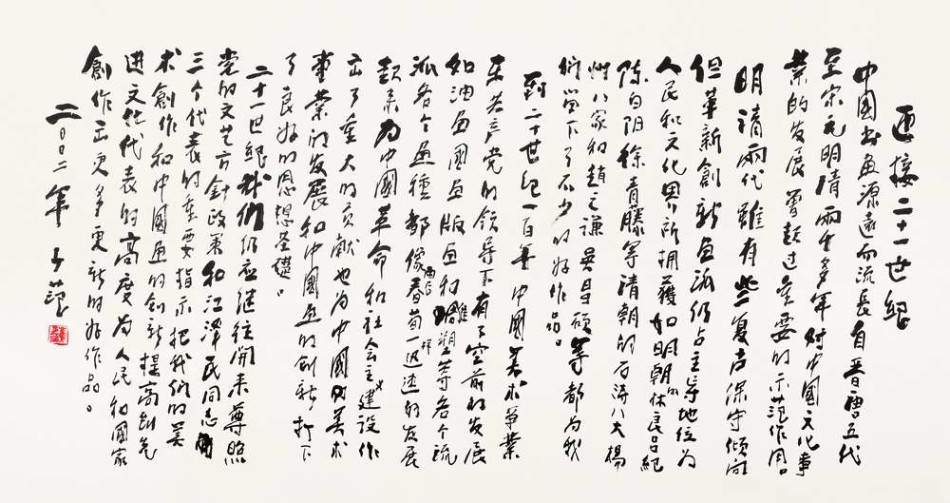 迎接二十一世纪
中国书画源远而流长自晋唐五代
至宋元明清两千多年对中国文化事
业的发展曾起过重要的示范作用。
明清两代虽有些复古保守倾向
但革新创新画派仍占主导地位为
人民和文化界所拥护如明朝的林良吕纪
陈白阳徐青藤等清朝的石涛八大杨
州八家和赵之谦吴昌硕等都为我
们留下了不少的好作品。
到二十世纪一百年中国美术事业
在共产党的领导下有了空前的发展
如油画国画版画和雕塑等各个流
派各个画种都像雨后春笋一样迅速的发展
起来为中国革命和社会主义建设作
出了重大的贡献也为中国的美术
事业的发展和中国画的创新打下
了良好的思想基础。
二十一世纪我们仍应继往开来尊照
党的文艺方针政策和江泽民同志
三个代表的重要指示把我们的美
术创作和中国画的创新提高到先
进文化代表的高度为人民和国家
创作出更多更新的好作品。
二〇〇二年 子范